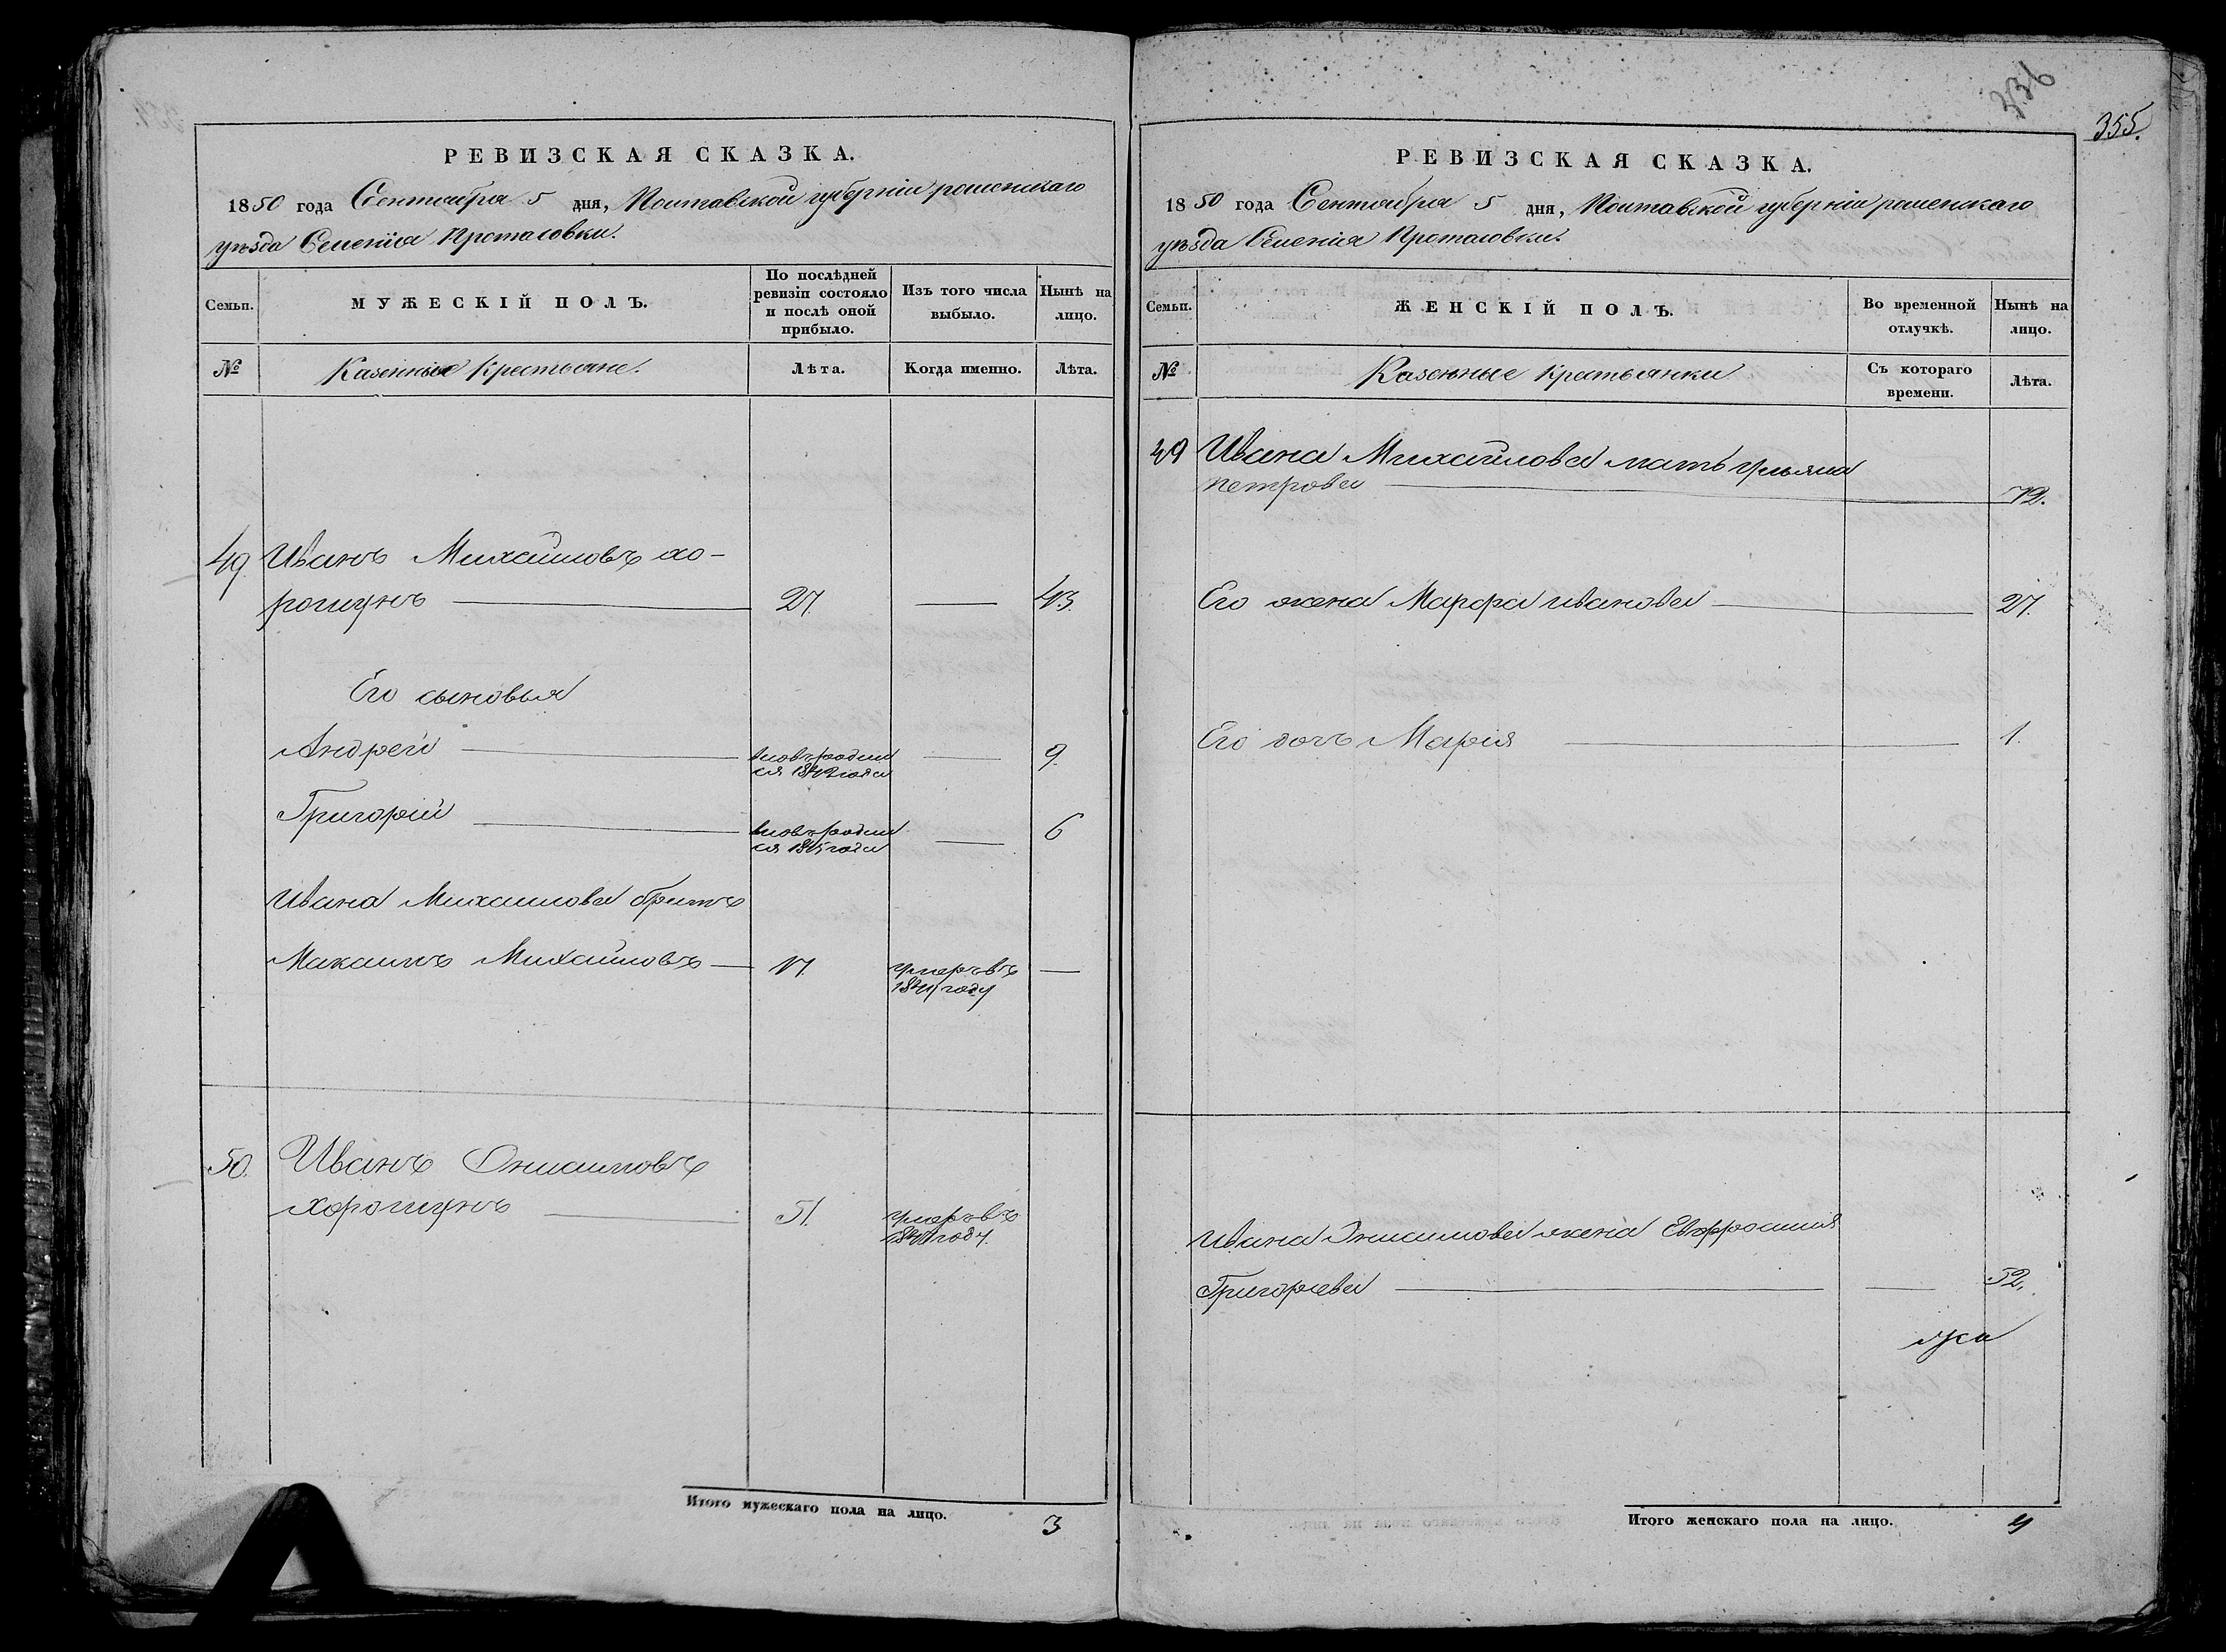 336
355.
РЕВИЗСКАЯ СКАЗКА.
1850 года Сентября 5 дня, Полтавской губерніи роменскаго
уѣзда Селенія Протасовки.
Семьи.
МУЖЕСКІЙ ПОЛЪ.
По послѣдней
ревизіи состояло
и послѣ оной
прибыло.
Изъ того числа
выбыло.
Нынѣ на
лицо.
№
Казенные Крестьяне.
Лѣта.
Когда именно.
Лѣта.
49 Иванъ Михайловъ хо-
рошунъ 27. 43.
Его сыновья
Андрей вновь родил
ся 1842 года 9.
Григорій вновь родил
ся 1845 года 6
Ивана Михайлова братъ
Максимъ Михайловъ 17 умеръ въ
году
50. Иванъ Онисимовъ
хорошунъ 51. умеръ въ
году.
Итого мужескаго пола на лицо. 3
РЕВИЗСКАЯ СКАЗКА.
1850 года Сентября 5 дня, Полтавской губерніи роменскаго
уѣзда Селенія Протасовки.
Семьи.
ЖЕНСКІЙ ПОЛЪ.
Во временной
отлучкѣ.
Нынѣ на
лицо.
№
Казенные Крестьянки
Съ котораго
времени.
Лѣта.
49 Ивана Михайлова мать ульяна
петрова 72.
Его жена Марфа иванова 27.
Его дочь Марія 1.
Ивана Онисимова жена Евфросинія
Григорьева 52.
Итого женскаго пола на лицо. 4